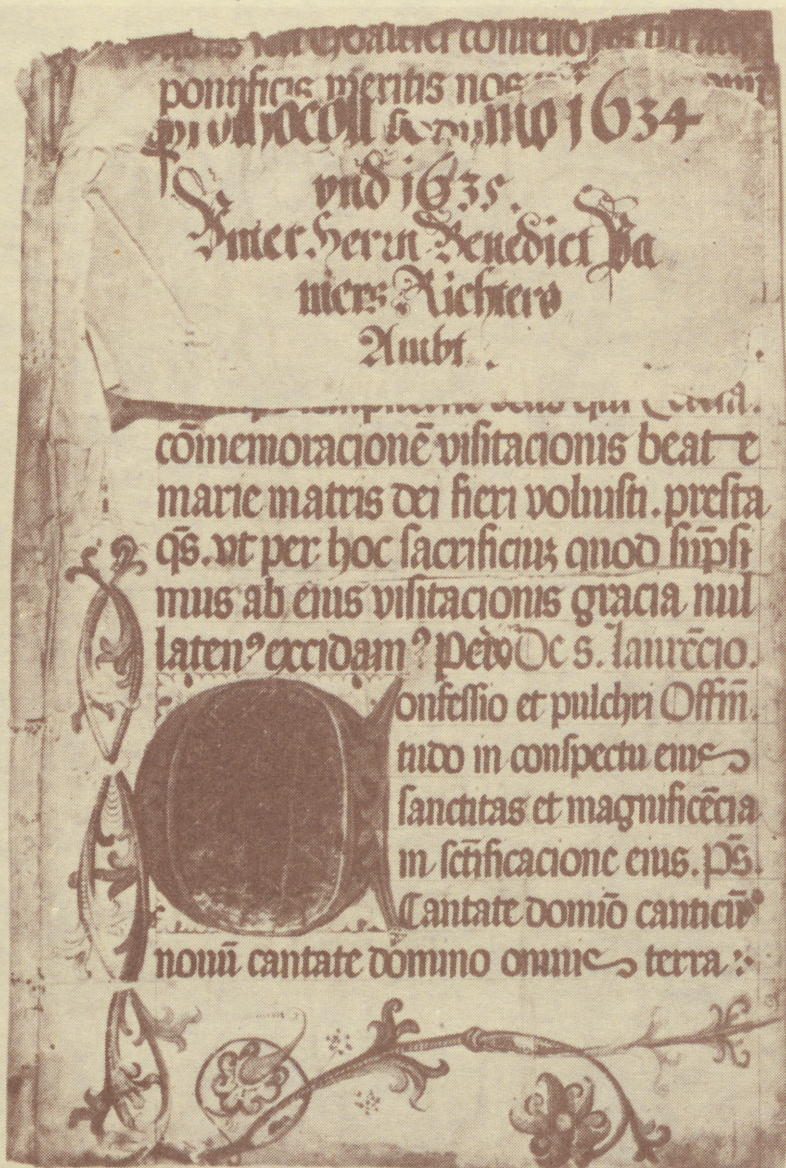 pontificis meritis
1634
vnd 1635.
Vnter Herrn Benedict Pa
mers Richters
Ambt.
cōmemoracionē visitacionis beat e
marie matris dei fieri voluisti. presta
qs̄. vt per hoc sacrificiuz quod sūpsi
mus ab eius visitacionis gracia nul
latenꝰ excidamꝰ De s. laurēcio.
onfessio et pulchri Offm̄.
tudo in conspectu eius
sanctitas et magnificēcia
in sct̄ificacione eius. ps̄.
Cantate domīo canticū
nouū cantate domino omnis terra :